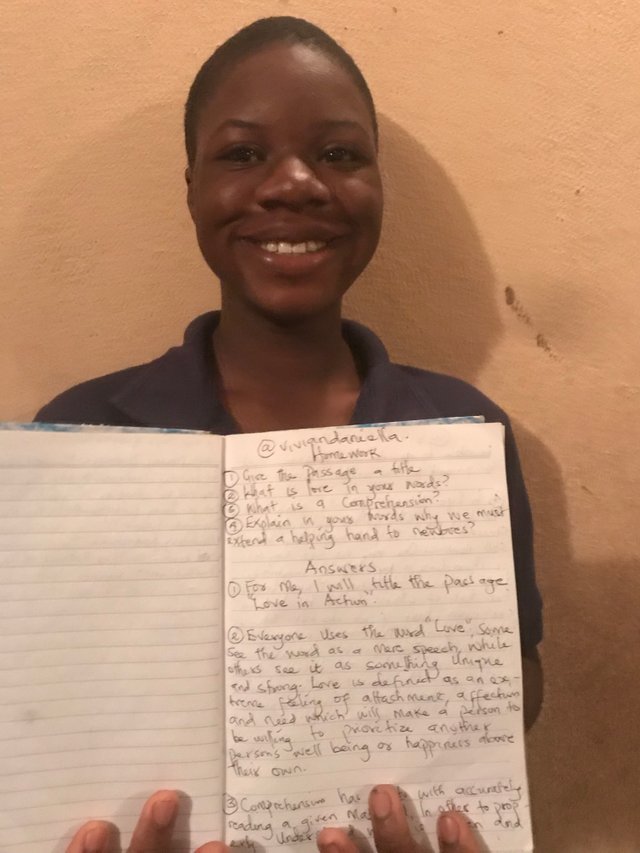 @viviandaniella.
Homework
① Give the passage a title
② What is love in your words?
③ What is a Comprehension?
④ Explain in your words why we must
extend a helping hand to newbies?
Answers
① For me, I will title the passage
"Love in Action".
② Everyone uses the word "Love", Some
see the word as a mere speech, while
others see it as something Unique
and strong. Love is defined as an ex-
treme feeling of attachment, affection
and need which will make a person to
be willing to prioritize another
person's well being or happiness above
their own.
③ Comprehension has with accurately
reading a given In other to prop-
erly and